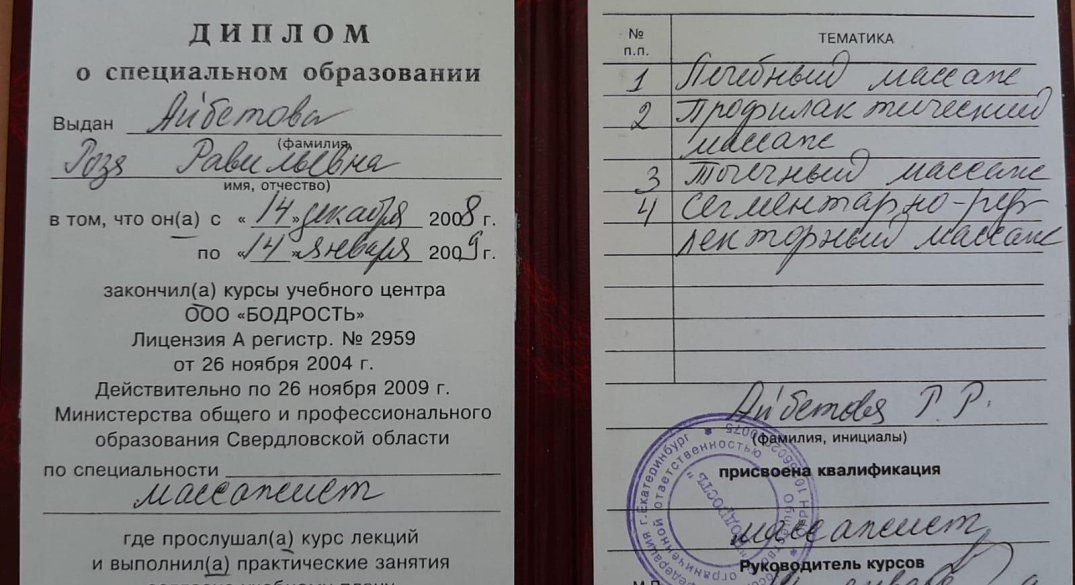 ДИПЛОМ
о специальном образовании
Выдан Айбетова
(фамилия,
Роза Равильевна
имя, отчество)
в том, что он(а) с «14» декабря 2008 г.
по «14» января 2009 г.
закончил(а) курсы учебного центра
ООО «БОДРОСТЬ»
Лицензия А регистр. № 2959
от 26 ноября 2004 г.
Действительно по 26 ноября 2009 г.
Министерства общего и профессионального
образования Свердловской области
по специальности
массажист
где прослушал(а) курс лекций
и выполнил(а) практические занятия
согласно учебному плану
№ п.п. ТЕМАТИКА
1 Лечебный массаж
2 Профилактический
массаж
3 Точечный массаж
4 Сегментарно-реф-
лекторный массаж
Айбетова Р.Р.
(фамилия, инициалы)
присвоена квалификация
массажист
Руководитель курсов
М.П.
г.Екатеринбург
ограниченной ответственностью
"БОДРОСТЬ"